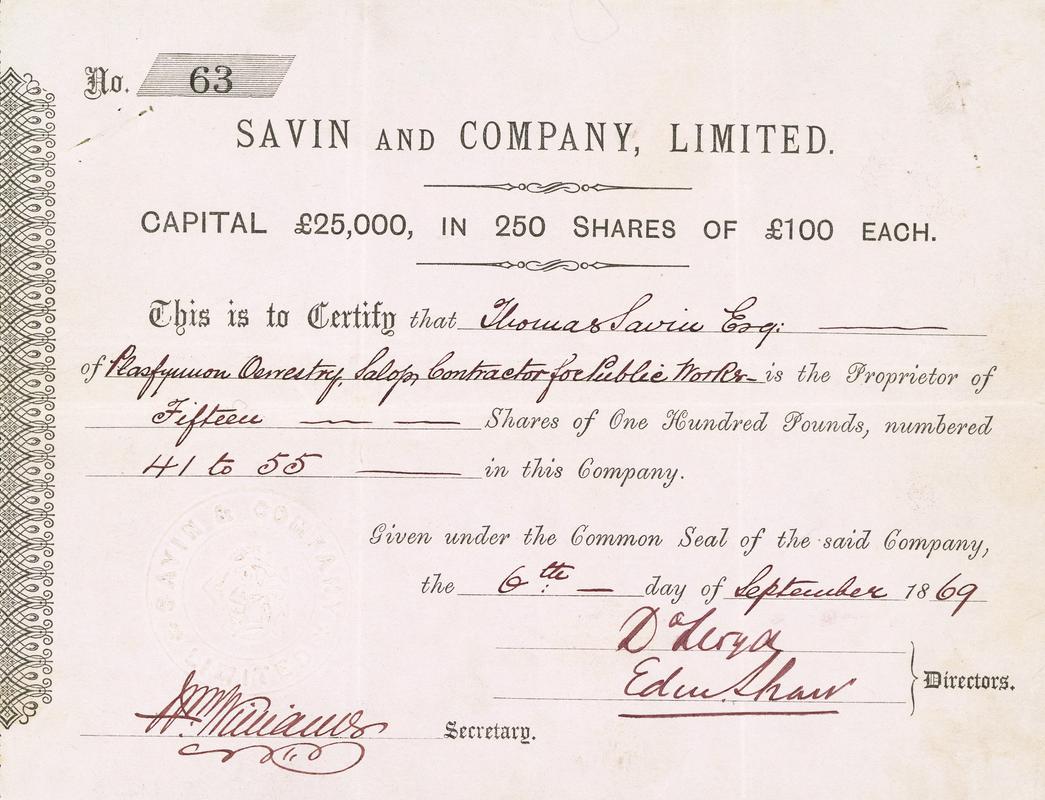 No. 63
SAVIN AND COMPANY, LIMITED.
CAPITAL £25,000, IN 250 SHARES OF £100 EACH.
This is to Certify that Thomas Savin Esq:
of Plasfynnon Oswestry, Salop, Contractor for Public Works is the Proprietor of
Fifteen Shares of One Hundred Pounds, numbered
41 to 55 in this Company.
Given under the Common Seal of the said Company,
the 6th day of September 1869
SAVIN & COMPANY LIMITED
Dd Lloyd
Edw. Shaw
Directors.
Wm Williams Secretary.